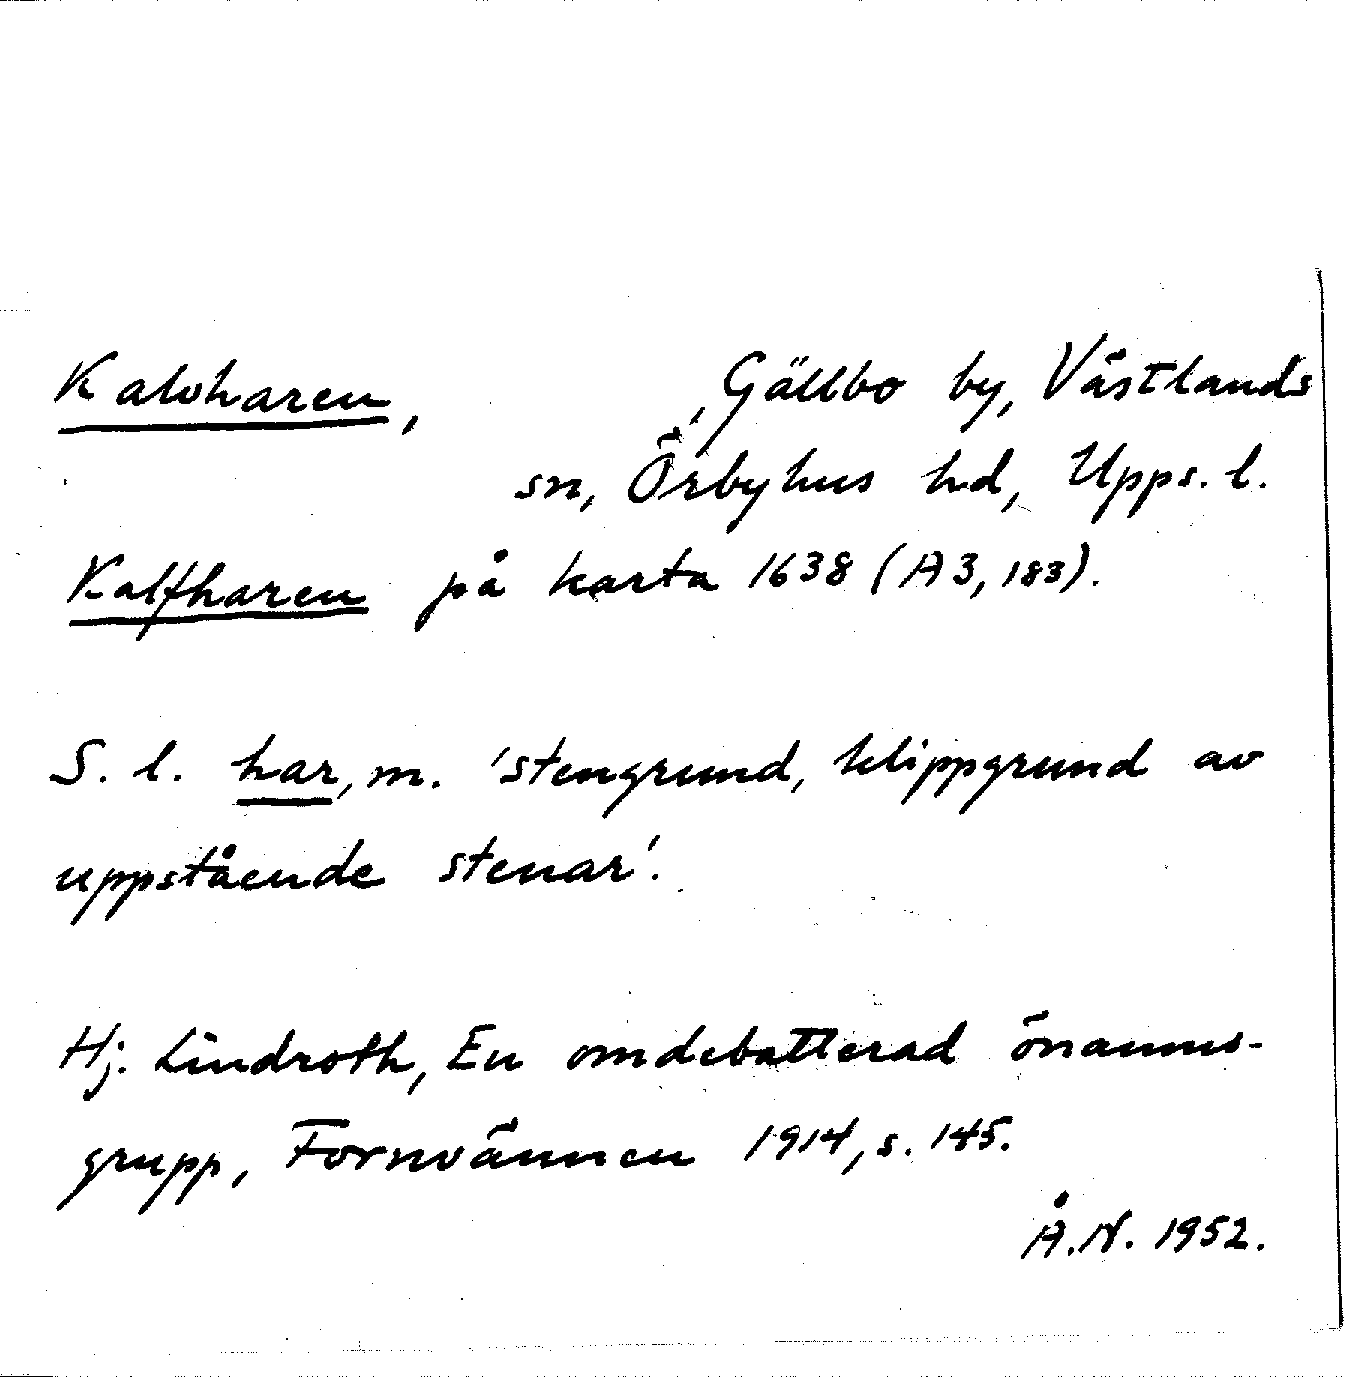 Kalvharen, , Gällbo by, Västlands
sn, Örbyhus hd, Upps. l.
Kalfharen på karta 1638 (A3, 183).
S. l. har, m. 'stengrund, klippgrund av
uppstående stenar'.
Hj. Lindroth, En omdebatterad önamns-
grupp, Fornvännen 1914, s. 145.
Å.N. 1952.